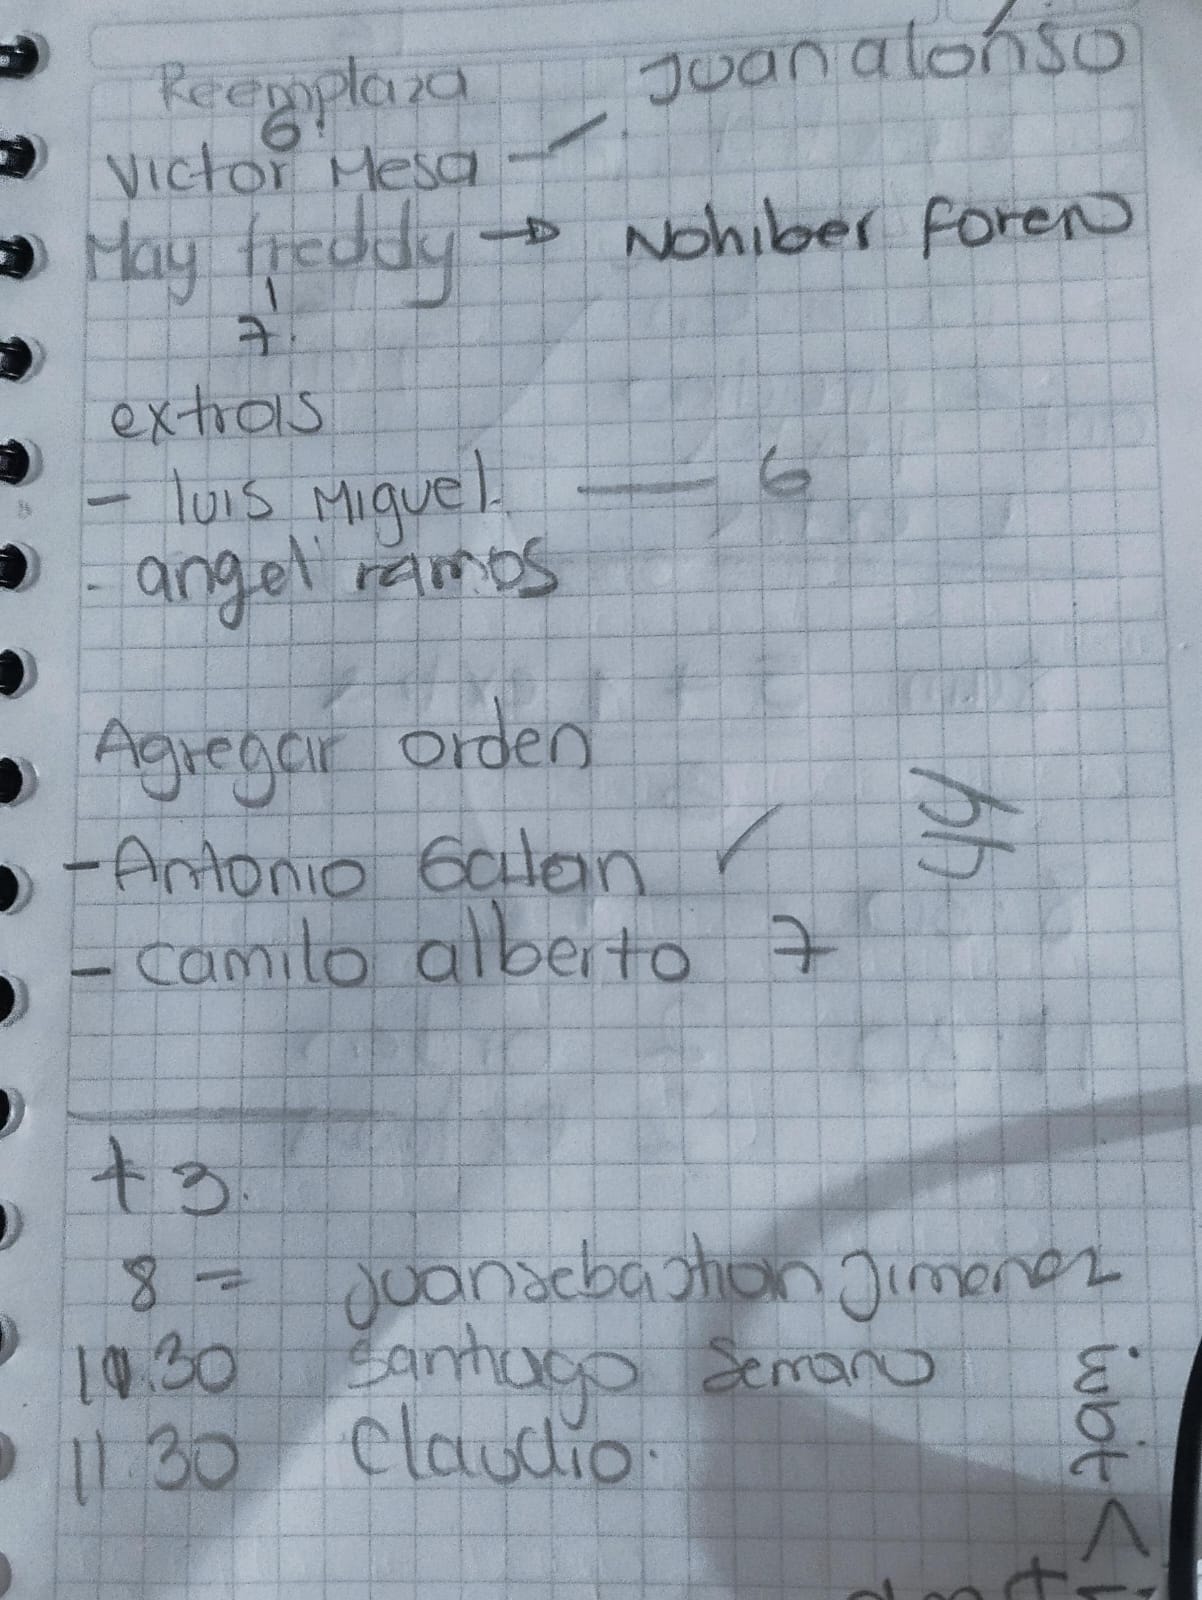 Reemplaza
Juan alonso
6
Victor Mesa
May freddy → Nohiber foren
7.
extras
- luis Miguel. — 6
- angel ramos
Agregar orden
44
- Antonio Galan ✓
- camilo alberto 7
+3.
8 = Juan sebasthian Jimenez
10.30 Santiago Serrano
11.30 Claudio.